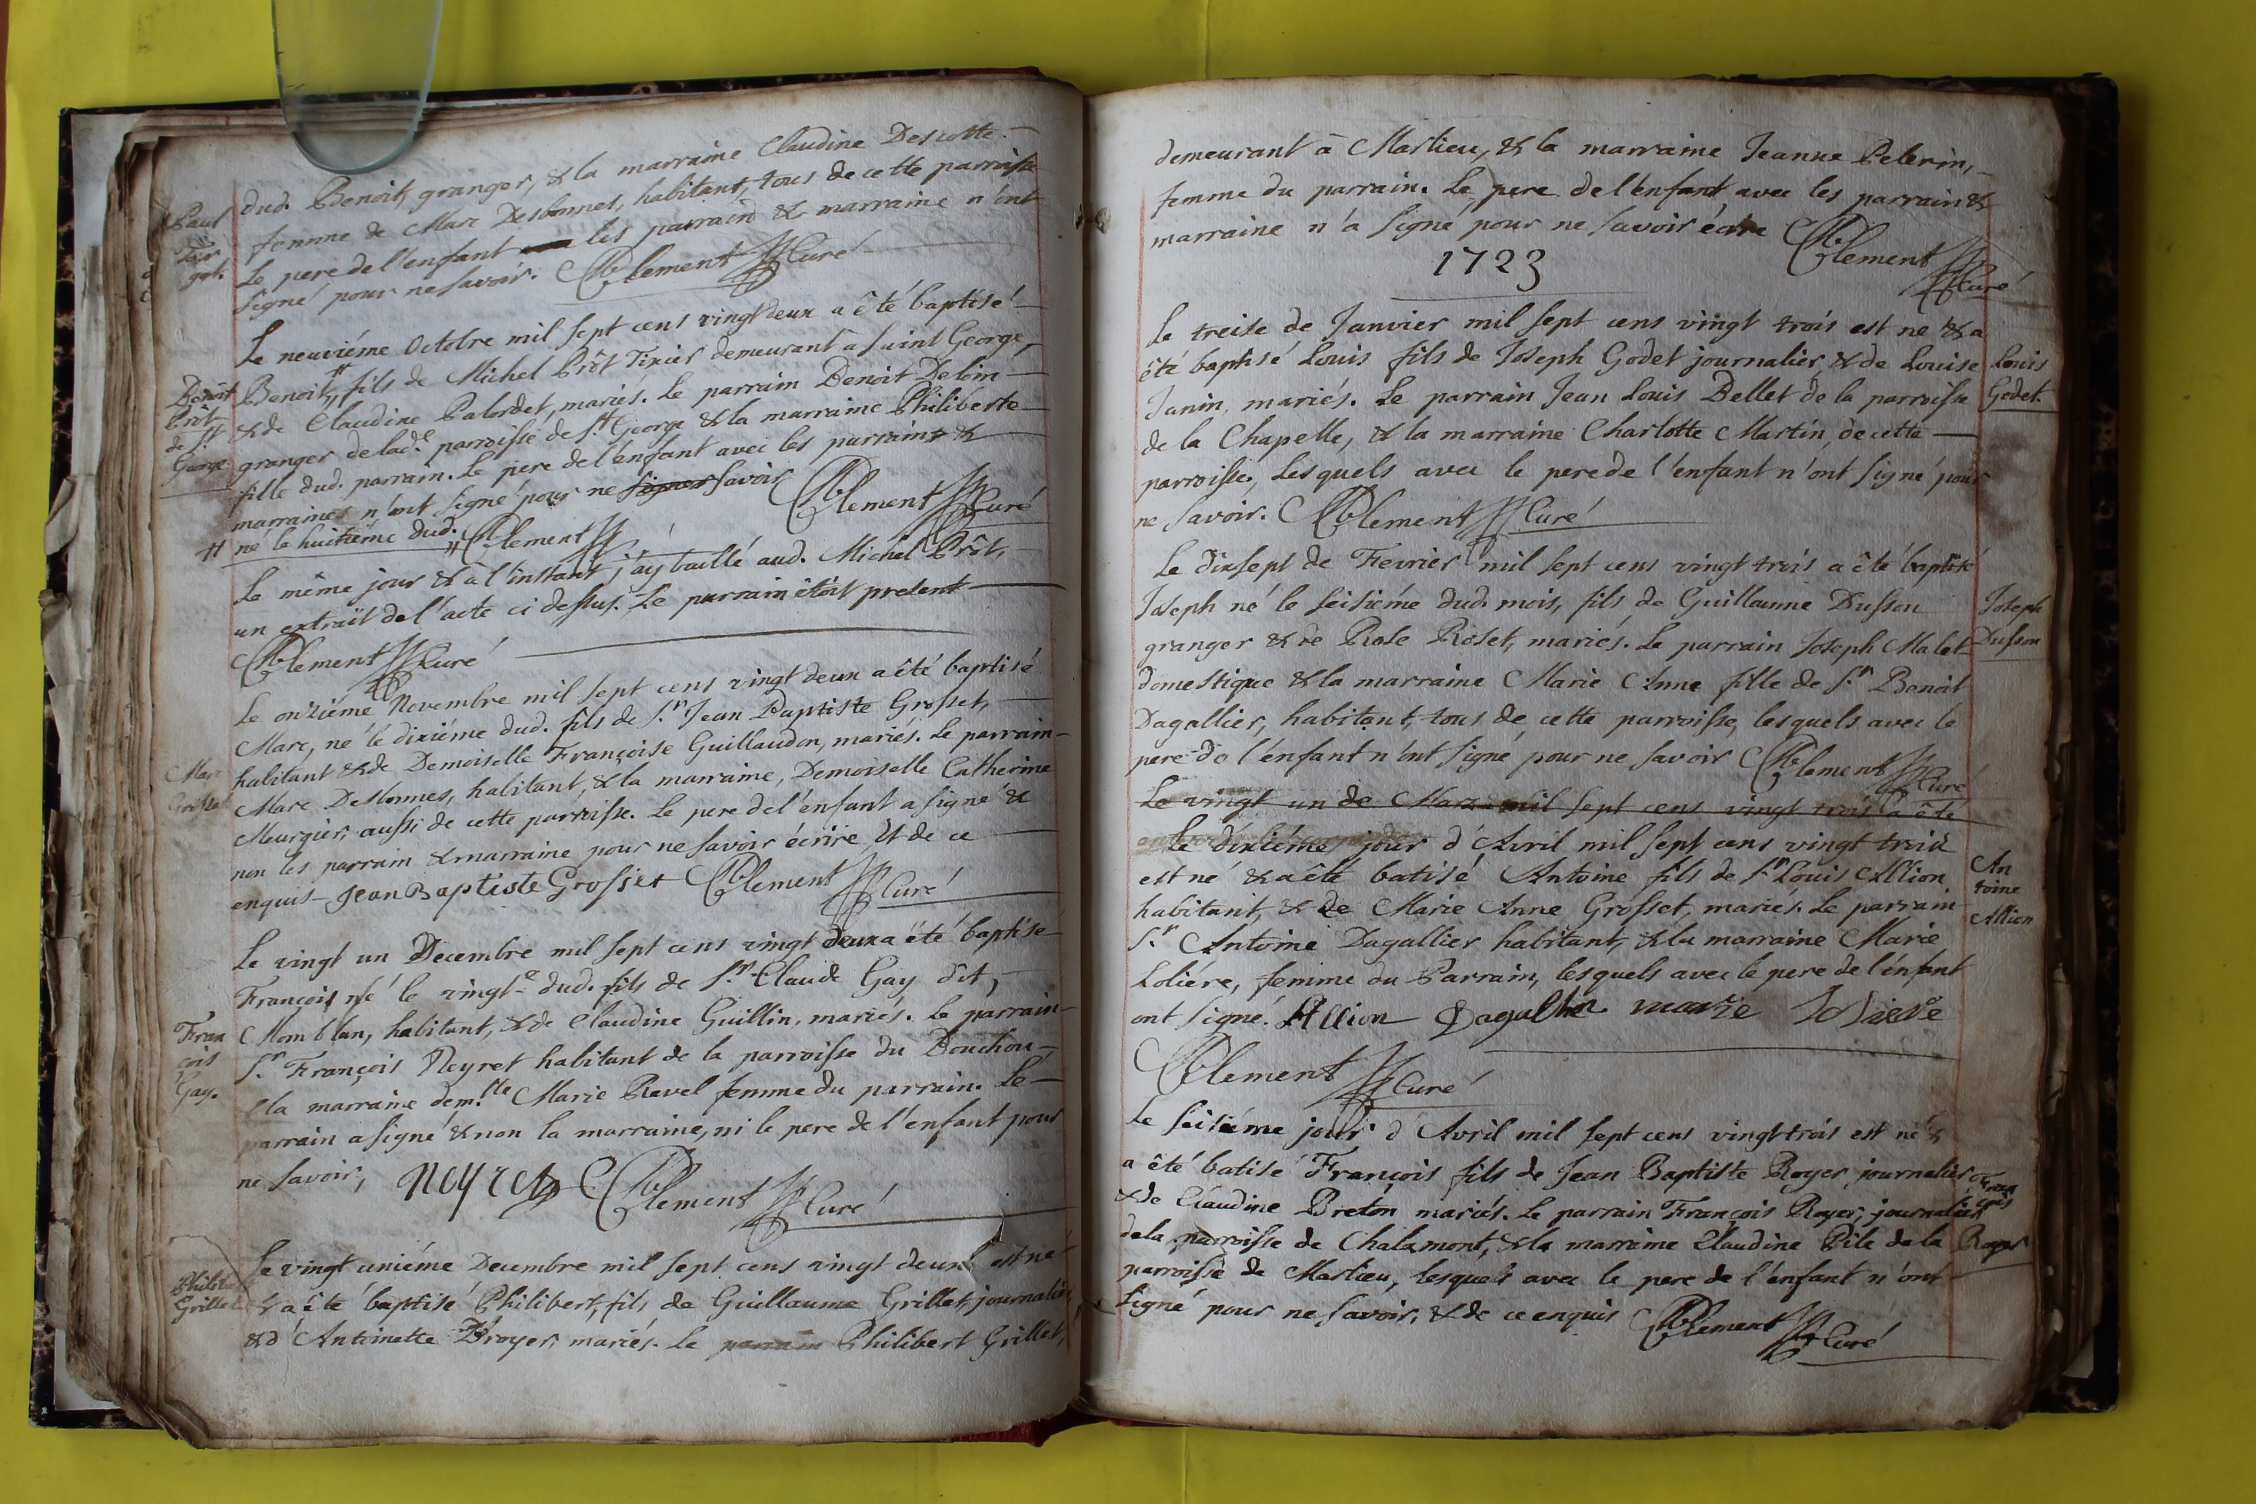 dud. Benoit, granger, & la marraine Claudine Descotte
femme de Marc Desbonnes, habitant, tous de cette parroisse
Le pere de l'enfant les parrain & marraine n'ont
signé pour ne savoir. Clement Curé
Paul
got.
Le neuviéme Octobre mil sept cens vingt deux a êté baptisé
Benoit, fils de Michel Prôt Tixier demeurant à saint George,
& de Claudine Balordet, mariés. Le parrain Benoit Deloin
granger de lad.e parroisse de S.t George & la marraine Philiberte
fille dud. parrain. Le pere de l'enfant avec les parrains &
marraines n'ont signé pour ne signer savoir Clement Curé
# né le huitiéme dud. Clement
Benoit
Prôt
de S.t
George
Le même jour & à l'instant j'ay taillé aud. Michel Prôt,
un extrait de l'acte ci dessus. Le parrain êtoit present
Clement Curé
Le onziéme Novembre mil sept cens vingt deux a êté baptisé
Marc, né le dixiéme dud. fils de S.r Jean Baptiste Grosset,
habitant & de Demoiselle Françoise Guillaudon, mariés. Le parrain
Marc Desbonnes, habitant, & la marraine, Demoiselle Catherine
Meurgier, aussi de cette parroisse. Le pere de l'enfant a signé &
non les parrain & marraine pour ne savoir écrire, Et de ce
enquis Jean Baptiste Grosset Clement Curé
Marc
Grosset
Le vingt un Decembre mil sept cens vingt deux a êté baptisé
François né le vingt.e dud. fils de S.r Claude Gay dit,
Momblan, habitant, & de Claudine Guillin, mariés. Le parrain
S.r François Neyret habitant de la parroisse du Bouchou,
& la marraine dem.lle Marie Ravel femme du parrain. Le
parrain a signé & non la marraine, ni le pere de l'enfant pour
ne savoir, Neyret Clement Curé
Fran
çois
Gay.
Le vingt uniéme Decembre mil sept cens vingt deux est né
& a êté baptisé Philibert, fils de Guillaume Grillet, journalier
& d'Antoinette Broyer, mariés. Le parrain Philibert Grillet,
Philibert
Grillet
demeurant à Marlieu, & la marraine Jeanne Pelerin,
femme du parrain. Le pere de l'enfant avec les parrain &
marraine n'a signé pour ne savoir écrire Clement
Curé
1723
Le treise de Janvier mil sept cens vingt trois est né & a
êté baptisé Louis fils de Joseph Godet journalier, & de Louise
Janin, mariés. Le parrain Jean Louis Bellet de la parroisse
de la Chapelle, & la marraine Charlotte Martin, de cette
parroisse, Lesquels avec le pere de l'enfant n'ont signé pour
ne savoir. Clement Curé
Louis
Godet.
Le dixsept de Fevrier mil sept cens vingt trois a êté baptisé
Joseph né le seisiéme dud. mois, fils de Guillaume Dusson
granger & de Rose Roset, mariés. Le parrain Joseph Malet
domestique & la marraine Marie Anne fille de S.r Benoit
Dagallier, habitant, tous de cette parroisse, lesquels avec le
pere de l'enfant n'ont signé pour ne savoir Clement Curé
Joseph
Dusson
Le vingt un de Mars mil sept cens vingt trois a êté
Le dixiéme jour d'Avril mil sept cens vingt trois
est né & a êté batisé Antoine fils de S.r Louis Allion
habitant, & de Marie Anne Grosset, mariés. Le parrain
S.r Antoine Dagallier habitant, & la marraine Marie
Loliére, femme du Parrain, lesquels avec le pere de l'enfant
ont signé. Allion Dagallier marie loliere
Clement Curé
An
toine
Allion
Le seisiéme jour d'Avril mil sept cens vingt trois est né &
a êté batisé François fils de Jean Baptiste Royer, journalier
& de Claudine Breton mariés. Le parrain François Royer, journalier
de la parroisse de Chalamont, & la marraine Claudine Pile de la
parroisse de Marlieu, lesquels avec le pere de l'enfant n'ont
signé pour ne savoir, & de ce enquis Clement Curé
Fran
çois
Royer